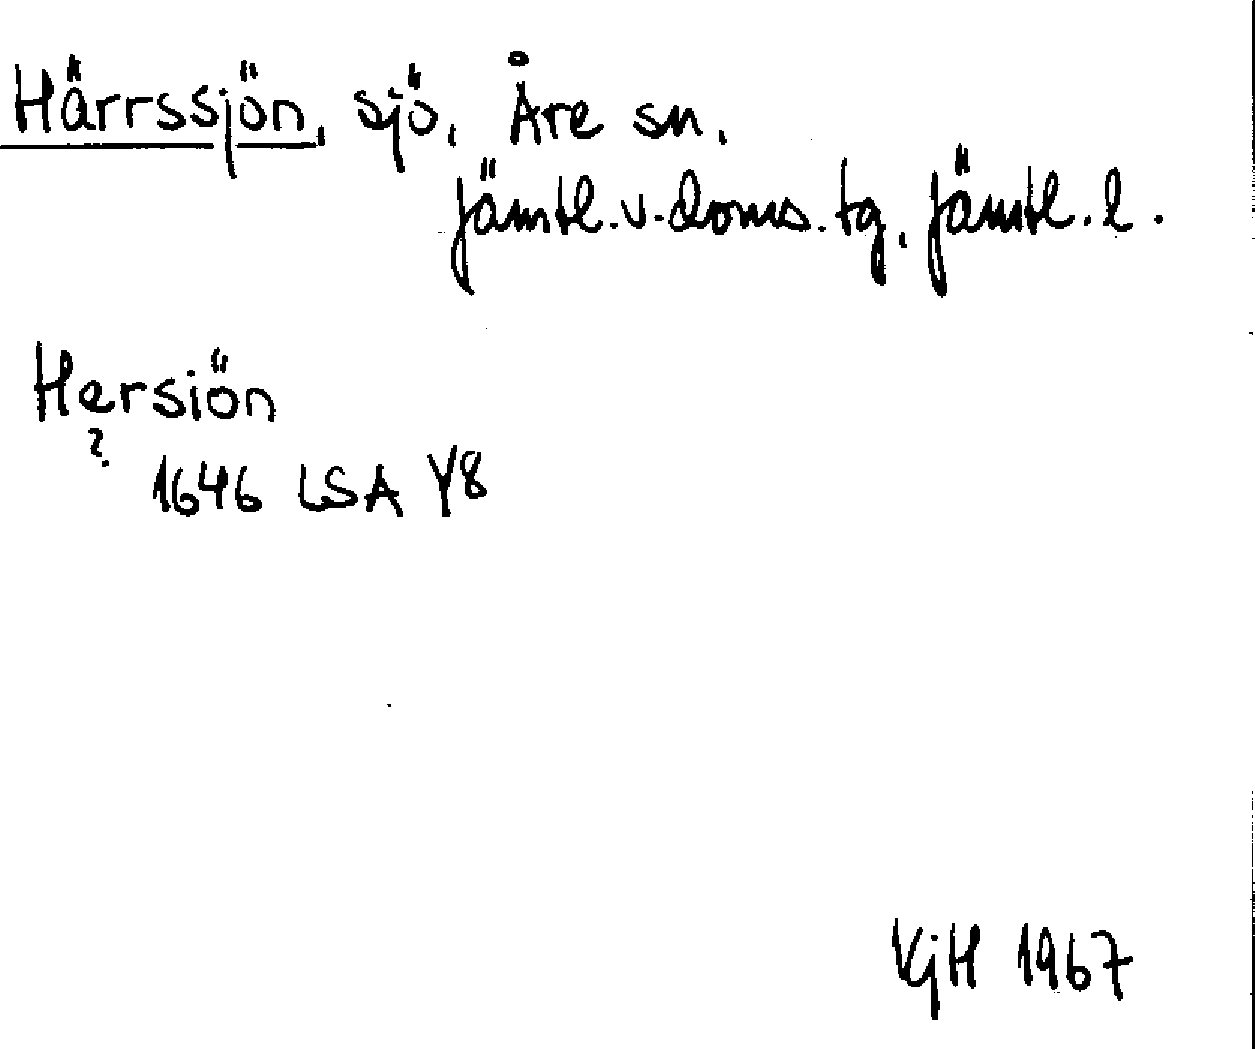 Härrssjön, sjö, Åre sn.
Jämtl.v.doms.tg, Jämtl.l.
Hersiön
?
1646 LSA Y8
VjH 1967